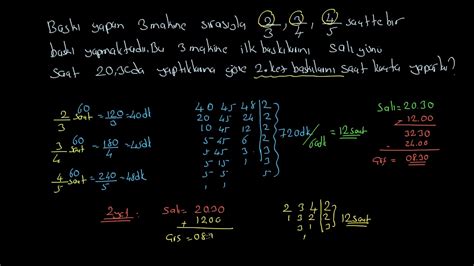 Baskı yapan 3 makine sırasıyla 2/3, 3/4, 4/5 saatte bir
baskı yapmaktadır. Bu 3 makine ilk baskılarını Salı günü
saat 20,30da yaptıklarına göre 2. kez baskılarını saat kaçta yaparlar?
2/3 saat 60 = 120/3 = 40dk
3/4 saat 60 = 180/4 = 45dk
4/5 saat 60 = 240/5 = 48dk
40 45 48 | 2
20 45 24 | 2
10 45 12 | 2
5 45 6 | 2
5 45 3 | 3
5 15 1 | 3
5 5 | 5
1 1
720dk/60dk = 12saat
Salı = 20.30
+ 12.00
32.30
- 24.00
Çrş = 08.30
2.yol:
Salı = 20.30
+ 1200
Çrş = 08.30
2 3 4 | 2
1 3 2 | 2
3 1 | 3
1
12saat